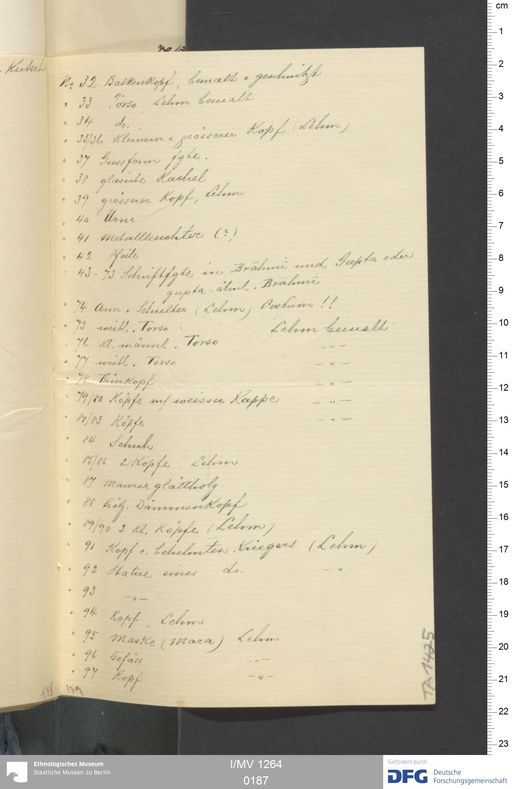 No 32 Balkenkopf, bemalt u geschnitzt
" 33 Torso, Lehm bemalt
" 34 do.
" 35/36 kleinerer u grösserer Kopf (Lehm)
" 37 Gussform fgte.
" 38 glasirte Kachel
" 39 grösserer Kopf, Lehm
" 40 Urne
" 41 Metallleuchter (?)
" 42 Pfeile
" 43-73 Schriftfgte in Brāhmī und Gupta oder
gupta-ähnl. Brāhmī
" 74 Arm u Schulter (Lehm) Costum!!
" 75 weibl. Torso Lehm bemalt
" 76 kl. männl. Torso - " -
" 77 weibl. Torso - " -
" 78 Thierkopf - " -
" 79/80 Köpfe m/ weisser Kappe - " -
" 81/83 Köpfe - " -
" 84 Schuh
" 85/86 2 Köpfe Lehm
" 87 Maurer glättholz
" 88 hölz. Dämonenkopf
" 89/90 2 kl. Köpfe (Lehm)
" 91 Kopf e. behelmten Kriegers (Lehm)
" 92 Statue eines do. - " -
" 93 - " -
" 94 Kopf, Lehm
" 95 Maske (Mara) Lehm
" 96 Gefäss - " -
" 97 Kopf - " -
TA 1425
cm
1
2
3
4
5
6
7
8
9
10
11
12
13
14
15
16
17
18
19
20
21
22
23
Ethnologisches Museum
Staatliche Museen zu Berlin
I/MV 1264
0187
Gefördert durch
DFG Deutsche
Forschungsgemeinschaft